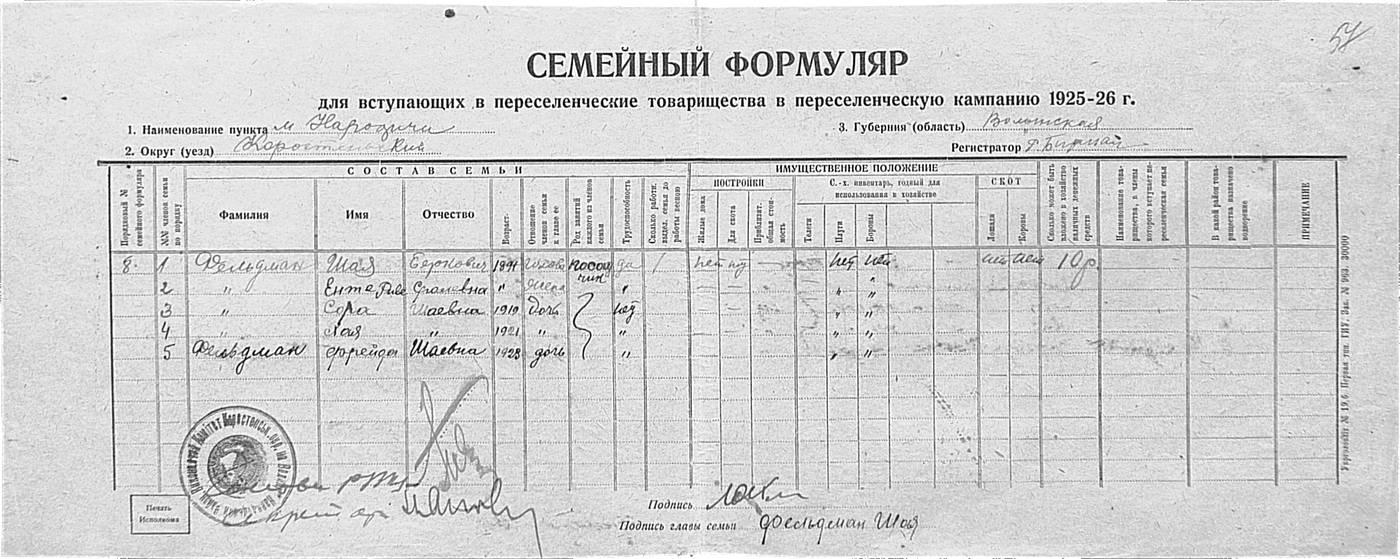 57
СЕМЕЙНЫЙ ФОРМУЛЯР
для вступающих в переселенческие товарищества в переселенческую кампанию 1925-26 г.
1. Наименование пункта м Народичи
3. Губерния (область) Волынская
2. Округ (уезд) Коростеньский
Регистратор
Порядковый № семейного формуляра
№№ членов семьи по порядку
СОСТАВ СЕМЬИ
Фамилия
Имя
Отчество
Возраст
Отношение членов семьи к главе ее
Род занятий каждого из членов семьи
Трудоспособность
Сколько работн. выдел. семья до работы весною
ИМУЩЕСТВЕННОЕ ПОЛОЖЕНИЕ
ПОСТРОЙКИ
Жилые дома
Для скота
Приблизит. общая стоимость
С.-х. инвентарь, годный для использования в хозяйстве
Телеги
Плуги
Бороны
СКОТ
Лошади
Коровы
Сколько может быть вложено в хозяйство наличных денежных средств
Наименование товарищества, в члены которого вступает переселенческая семья
В какой район товарищества назначено водворение
ПРИМЕЧАНИЕ
8 1 Фельдман Шая Беркович 1891 да 1 нет нет нет 10 р.
2 " Ента " "
3 " Сора Шаевна 1919 дочь нет " "
4 " Хая " 1921 " " " "
5 Фельдман Фрейда Шаевна 1923 дочь " " "
Печать Исполкома
Секретарь
Подпись
Подпись главы семьи Фельдман Шая
Упрполиобл № 19,6. Первая тип. ГПУ. Зак. № 963. 30000